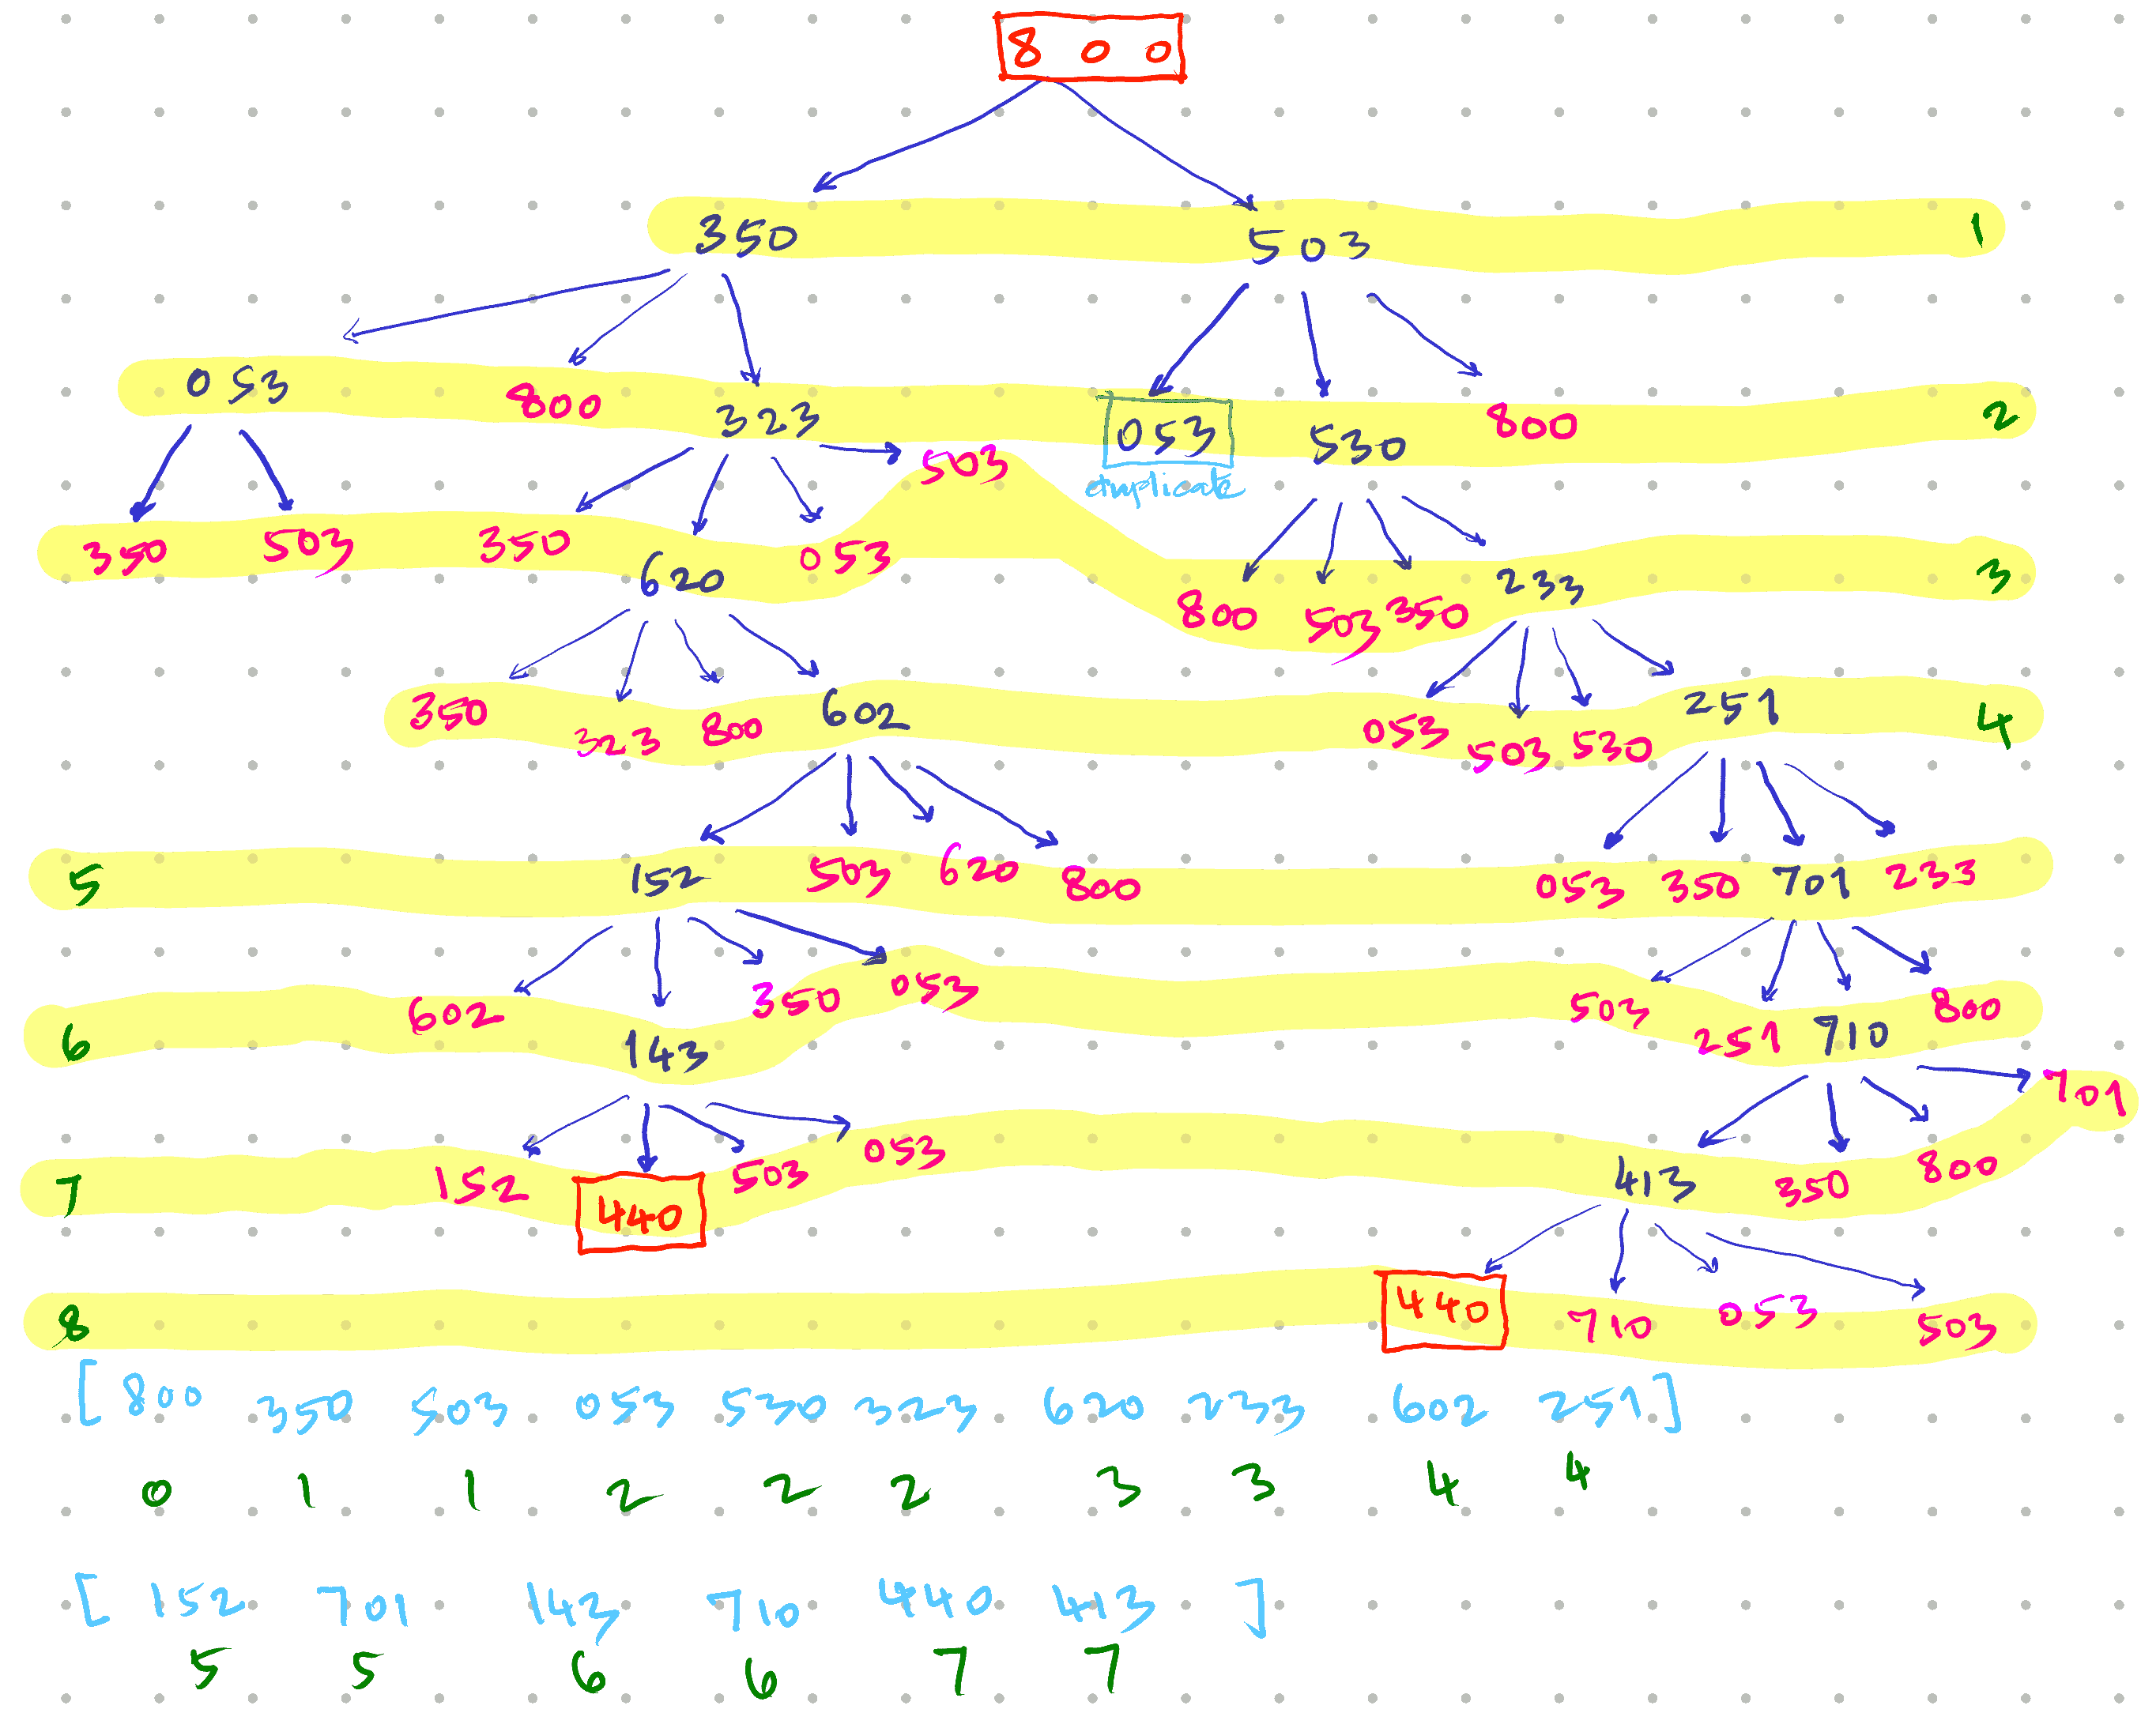 8 0 0
350 503 1
053 800 323 053 530 800 2
duplicate
350 503 350 620 053 503 800 503 350 233 3
350 323 800 602 053 503 530 251 4
5 152 503 620 800 053 350 701 233
6 602 143 350 053 503 251 710 800
7 152 440 503 053 413 350 800 701
8 440 710 053 503
[ 800 350 503 053 530 323 620 233 602 251 ]
0 1 1 2 2 2 3 3 4 4
[ 152 701 143 710 440 413 ]
5 5 6 6 7 7